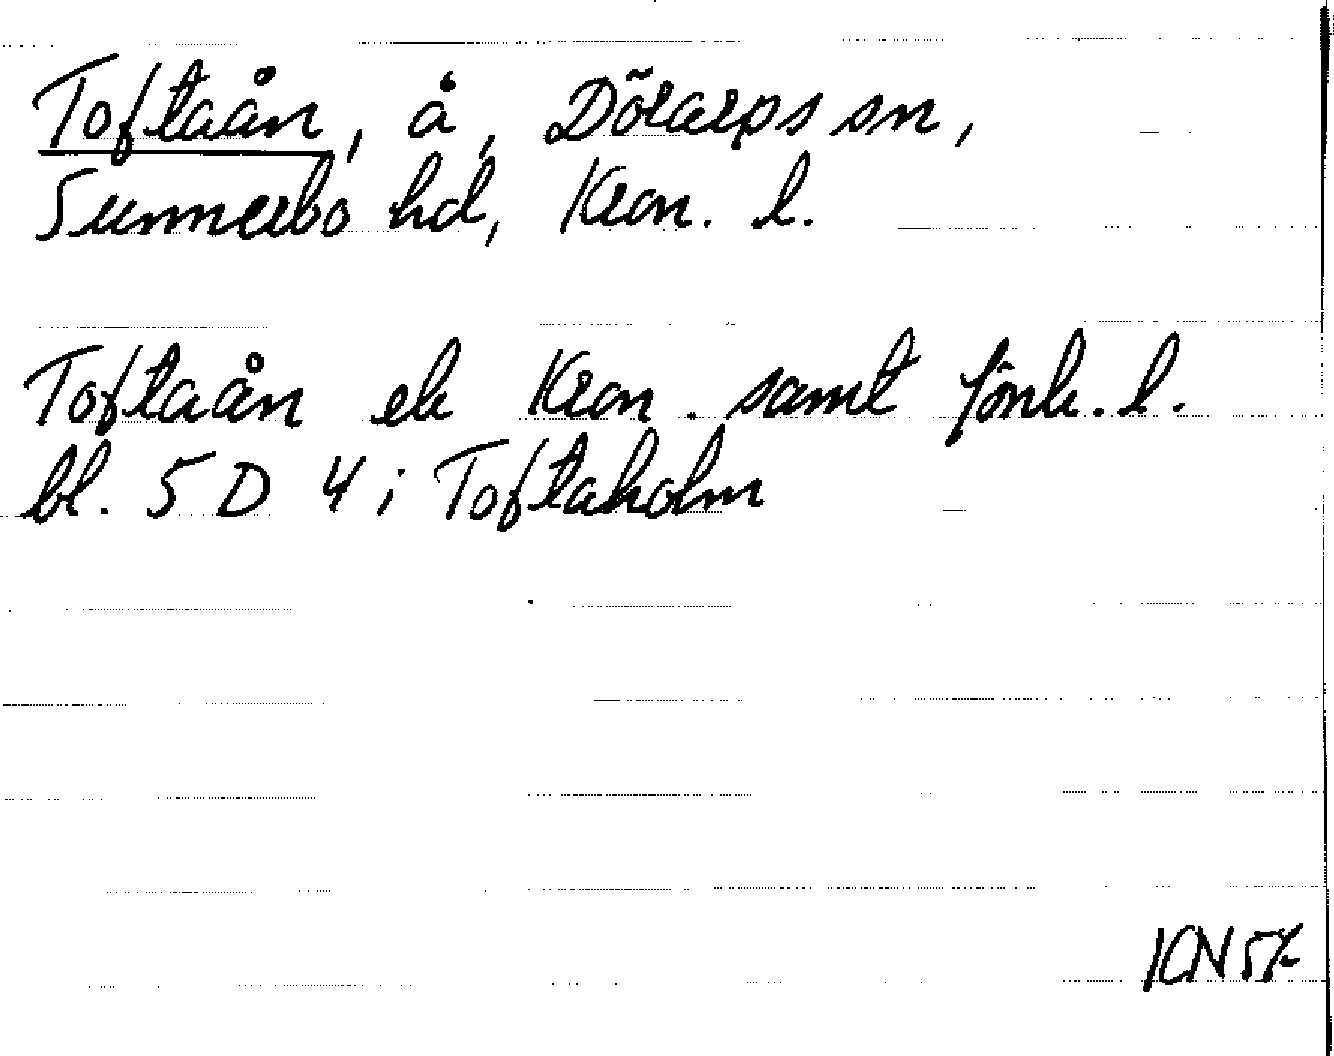 Toftaån, å, Dörarps sn,
Sunnerbo hd, Kron. l.
Toftaån ek Kron. samt Jönk. l.
bl. 5 D 4 i Toftaholm
KN 57